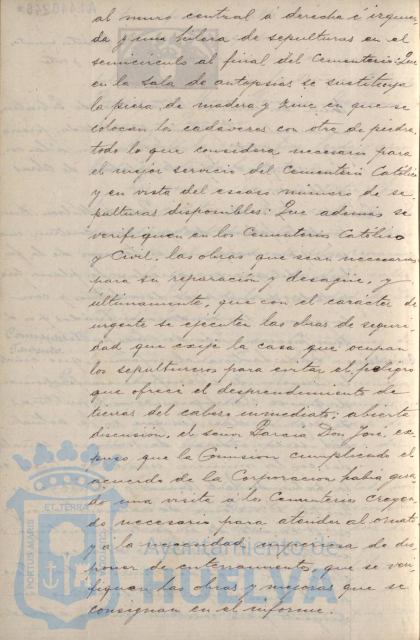 al muro central á derecha é izquier
da y una hilera de sepulturas en el
semicírculo al final del Cementerio: Que
en la sala de autopsias se sustituya
la piera de madera y zinc en que se
colocan los cadáveres con otra de piedra
todo lo que considera necesario para
el mejor servicio del Cementerio Católico
y en vista del escaso número de se
pulturas disponibles: Que además se
verifiquen en los Cementerios Católico
y Civil, las obras que sean necesarias
para su reparación y desagüe, y
últimamente, que con el carácter de
urgente se ejecuten las obras de seguri
dad que exije la casa que ocupan
los sepultureros para evitar el peligro
que ofrece el desprendimiento de
tierras del cabeso inmediato; abierta
discusión, el señor García Don José, ex
puso que la Comisión cumpliendo el
acuerdo de la Corporación había gira
do una visita á los Cementerios creyen
do necesario para atender al ornato
y á la necesidad de dis
poner de enterramientos, que se veri
fiquen las obras y mejoras que se
consignan en el informe.
PORTUS MARIS
ET TERRÆ
CUSTODIA
Ayuntamiento de
HUELVA